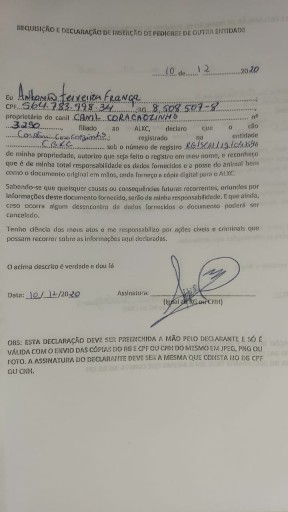 REQUISIÇÃO E DECLARAÇÃO DE INSERÇÃO DE PEDIGREE DE OUTRA ENTIDADE
10 de 12 2020
Eu Antonio Teixeira França
CPF. 564.783.998.34 RG 8,508,507-8
proprietário do canil CANIL CORAÇAOZINHO nº
3290, filiado ao ALKC, declaro que o cão
registrado na entidade
CBKC sob o número de registro
de minha propriedade, autorizo que seja feito o registro em meu nome, e reconheço
que é de minha total responsabilidade os dados fornecidos e a posse do animal bem
como o documento original em mãos, onde forneço a cópia digital para o ALKC.
Sabendo-se que quaisquer causas ou consequências futuras recorrentes, oriundos por
informações deste documento fornecido, serão de minha responsabilidade. E que ainda,
caso ocorra algum desencontro de dados fornecidos o documento poderá ser
cancelado.
Tenho ciência dos meus atos e me responsabilizo por ações cíveis e criminais que
possam recorrer sobre as informações aqui declaradas.
O acima descrito é verdade e dou fé
Data: 10/12/2020 Assinatura:
(Igual do RG ou CNH)
OBS: ESTA DECLARAÇÃO DEVE SER PREENCHIDA A MÃO PELO DECLARANTE E SÓ É
VÁLIDA COM O ENVIO DAS CÓPIAS DO RG E CPF OU CNH DO MESMO EM JPEG, PNG OU
FOTO. A ASSINATURA DO DECLARANTE DEVE SER A MESMA QUE CONSTA NO RG CPF
OU CNH.